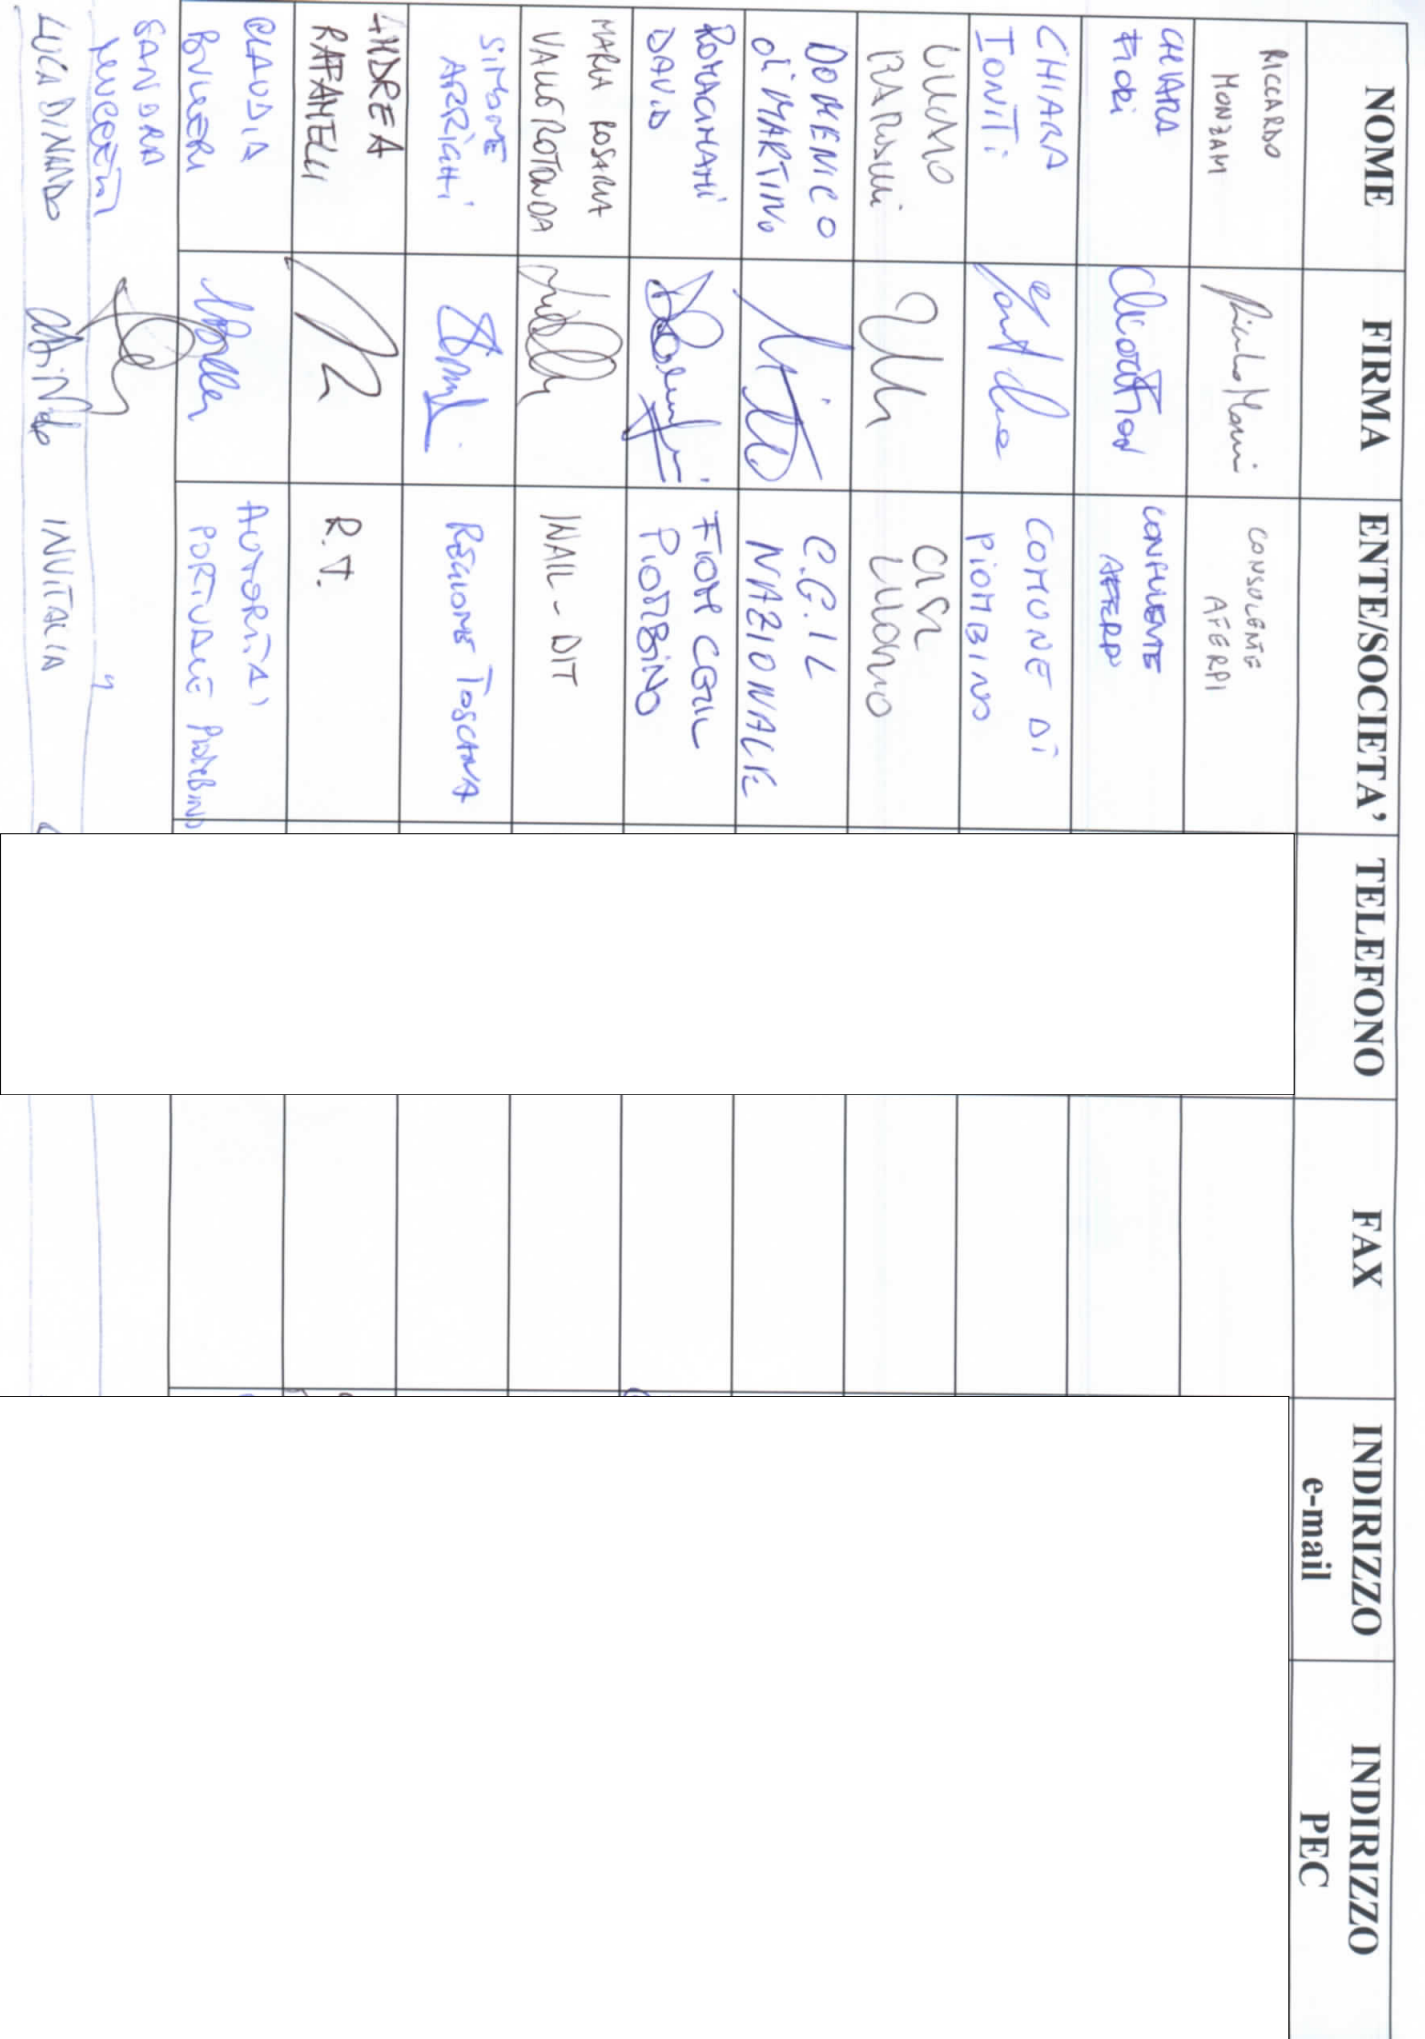 NOME FIRMA ENTE/SOCIETA' TELEFONO FAX INDIRIZZO e-mail INDIRIZZO PEC
RICCARDO
MONZAM
CONSULENTE
AFERPI
CHIARA
FIORI
CONSULENTE
AFERPI
CHIARA
IONTI
COMUNE DI
PIOMBINO
DOMENICO
di MARTINO
C.G.I.L
NAZIONALE
ROMAGNANI
DAVID
FIOM CGIL
PIOMBINO
MARIA ROSARIA
VALLEROTONDA
INAIL - DIT
SIMONE
ARRIGHI
REGIONE TOSCANA
ANDREA
RAFANELLI
R.T.
CLAUDIA
AUTORITA'
PORTUALE PIOMBINO
SANDRA
"
LUCA DINARDO
INVITALIA